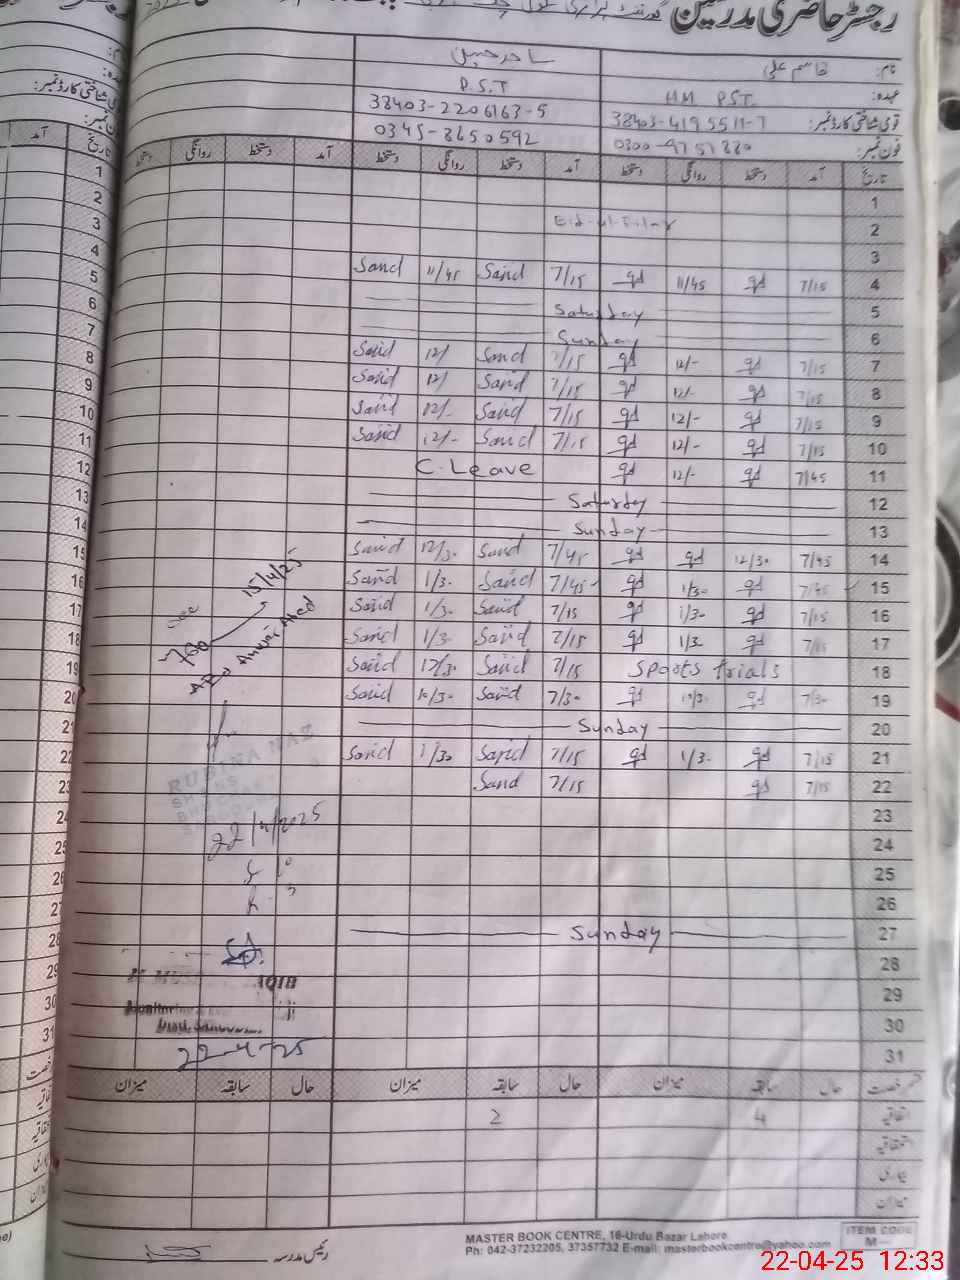 رجسٹر حاضری مدرسین
نام: قاسم علی ساجد حسین
عہدہ: HM PST. P.S.T
قومی شناختی کارڈ نمبر: 38403-4195511-7 38403-2206163-5
فون نمبر: 0300-9757220 0345-8650592
تاریخ آمد دستخط روانگی دستخط آمد دستخط روانگی دستخط آمد دستخط روانگی دستخط
1
2 Eid-ul-Fitar
3
4 7/15 qd 11/45 qd 7/15 Sand 11/45 Sand
5 Saturday
6 Sunday
7 7/15 qd 12/- qd 7/15 Sand 12/ Said
8 7/15 qd 12/- qd 7/15 Sand 12/ Said
9 7/15 qd 12/- qd 7/15 Sand 12/- Said
10 7/15 qd 12/- qd 7/15 Said 12/- Said
11 7/45 qd 12/- qd C. Leave
12 Saturday
13 Sunday
14 7/45 12/30 qd qd 7/45 Sand 12/30 Said
15 7/45 qd 1/30 qd 7/45 Sand 1/30 Sand
16 7/15 qd 1/30 qd 7/15 Said 1/30 Said
17 7/15 qd 1/30 qd 7/15 Said 1/30 Said
18 Sports trials 7/15 Said 12/30 Said
19 7/30 qd 10/30 qd 7/30 Said 10/30 Said
20 Sunday
21 7/15 qd 1/30 qd 7/15 Said 1/30 Said
22 7/15 qd 7/15 Sand
23
24
25
26
27 Sunday
28
29
30
31
15/4/25
RUBINA NAZ
22/4/2025
22-4-25
رخصت حال سابقہ میزان حال سابقہ میزان حال سابقہ میزان
اتفاقیہ 4 2
استحقاقیہ
بیماری
میزان
رئیس مدرسہ
MASTER BOOK CENTRE, 16-Urdu Bazar Lahore.
Ph: 042-37232205, 37357732 E-mail: masterbookcentre@yahoo.com
ITEM CODE
M—
22-04-25 12:33